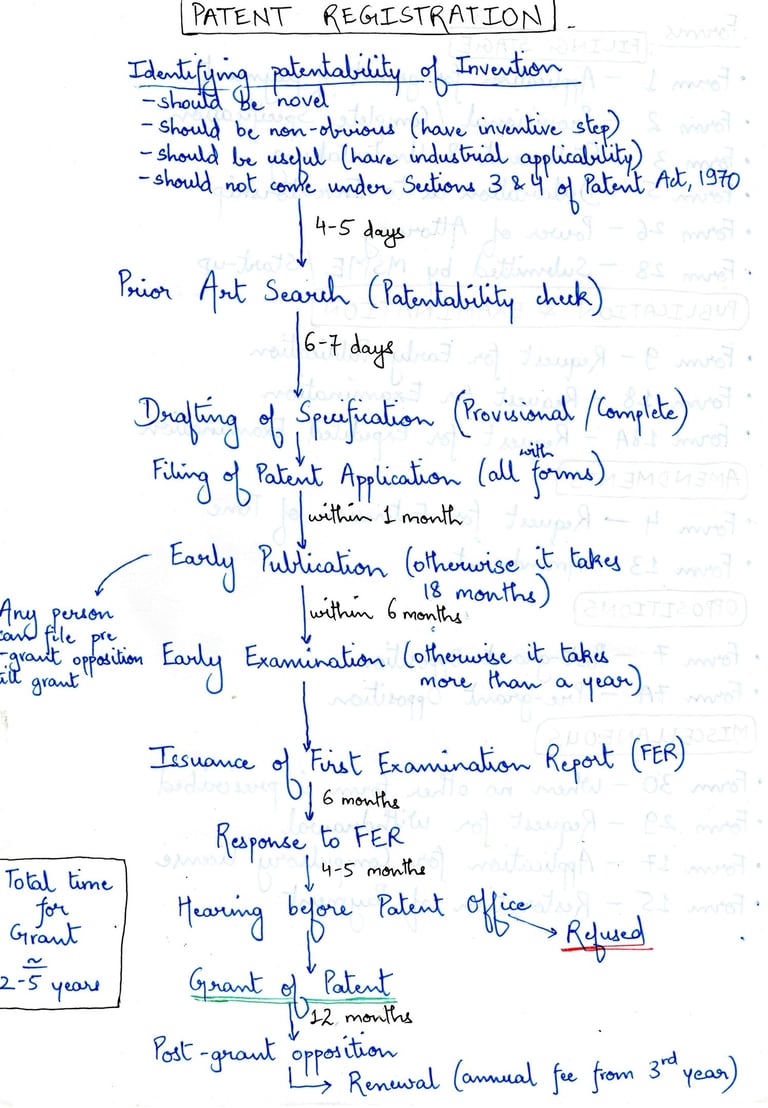 PATENT REGISTRATION
Identifying patentability of Invention
- should be novel
- should be non-obvious (have inventive step)
- should be useful (have industrial applicability)
- should not come under Sections 3 & 4 of Patent Act, 1970
4-5 days
Prior Art Search (Patentability check)
6-7 days
Drafting of Specification (Provisional / Complete)
Filing of Patent Application (all with forms)
within 1 month
Early Publication (otherwise it takes
18 months)
Any person
can file pre
-grant opposition
till grant
within 6 months
Early Examination (otherwise it takes
more than a year)
Issuance of First Examination Report (FER)
6 months
Response to FER
4-5 months
Hearing before Patent Office
Refused
Total time
for
Grant
≈
2-5 years
Grant of Patent
12 months
Post-grant opposition
Renewal (annual fee from 3rd year)